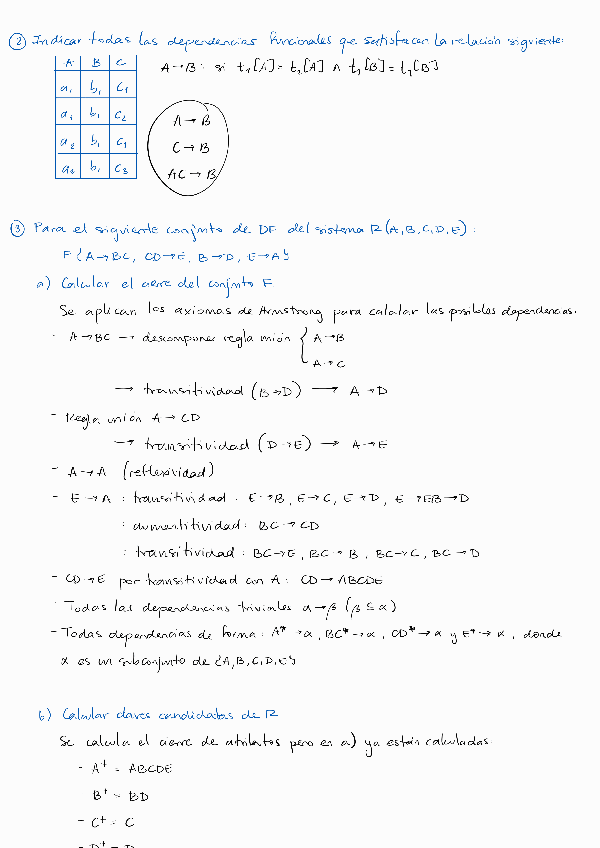 ② Indicar todas las dependencias funcionales que satisfacen la relación siguiente:
A B C
a₁ b₁ c₁
a₁ b₁ c₂
a₂ b₁ c₁
a₂ b₁ c₃
A → B : si t₁[A] = t₂[A] ∧ t₁[B] = t₂[B]
A → B
C → B
AC → B
③ Para el siguiente conjunto de DF del sistema R(A,B,C,D,E) :
F {A → BC, CD → E, B → D, E → A}
a) Calcular el cierre del conjunto F
Se aplican los axiomas de Armstrong para calcular las posibles dependencias.
- A → BC → descomponer regla unión { A → B
A → C
→ transitividad (B → D) → A → D
- Regla unión A → CD
→ transitividad (D → E) → A → E
- A → A (reflexividad)
- E → A : transitividad : E → B, E → C, E → D, E → EB → D
: aumentatividad : BC → CD
: transitividad : BC → E, BC → B, BC → C, BC → D
- CD → E por transitividad con A : CD → ABCDE
- Todas las dependencias triviales α → β (β ⊆ α)
- Todas dependencias de forma : A* → α, BC* → α, CD* → α y E* → α, donde
α es un subconjunto de {A,B,C,D,E}
b) Calcular claves candidatas de R
Se calcula el cierre de atributos pero en a) ya están calculadas.
- A⁺ = ABCDE
B⁺ = BD
- C⁺ = C
- D⁺ = D